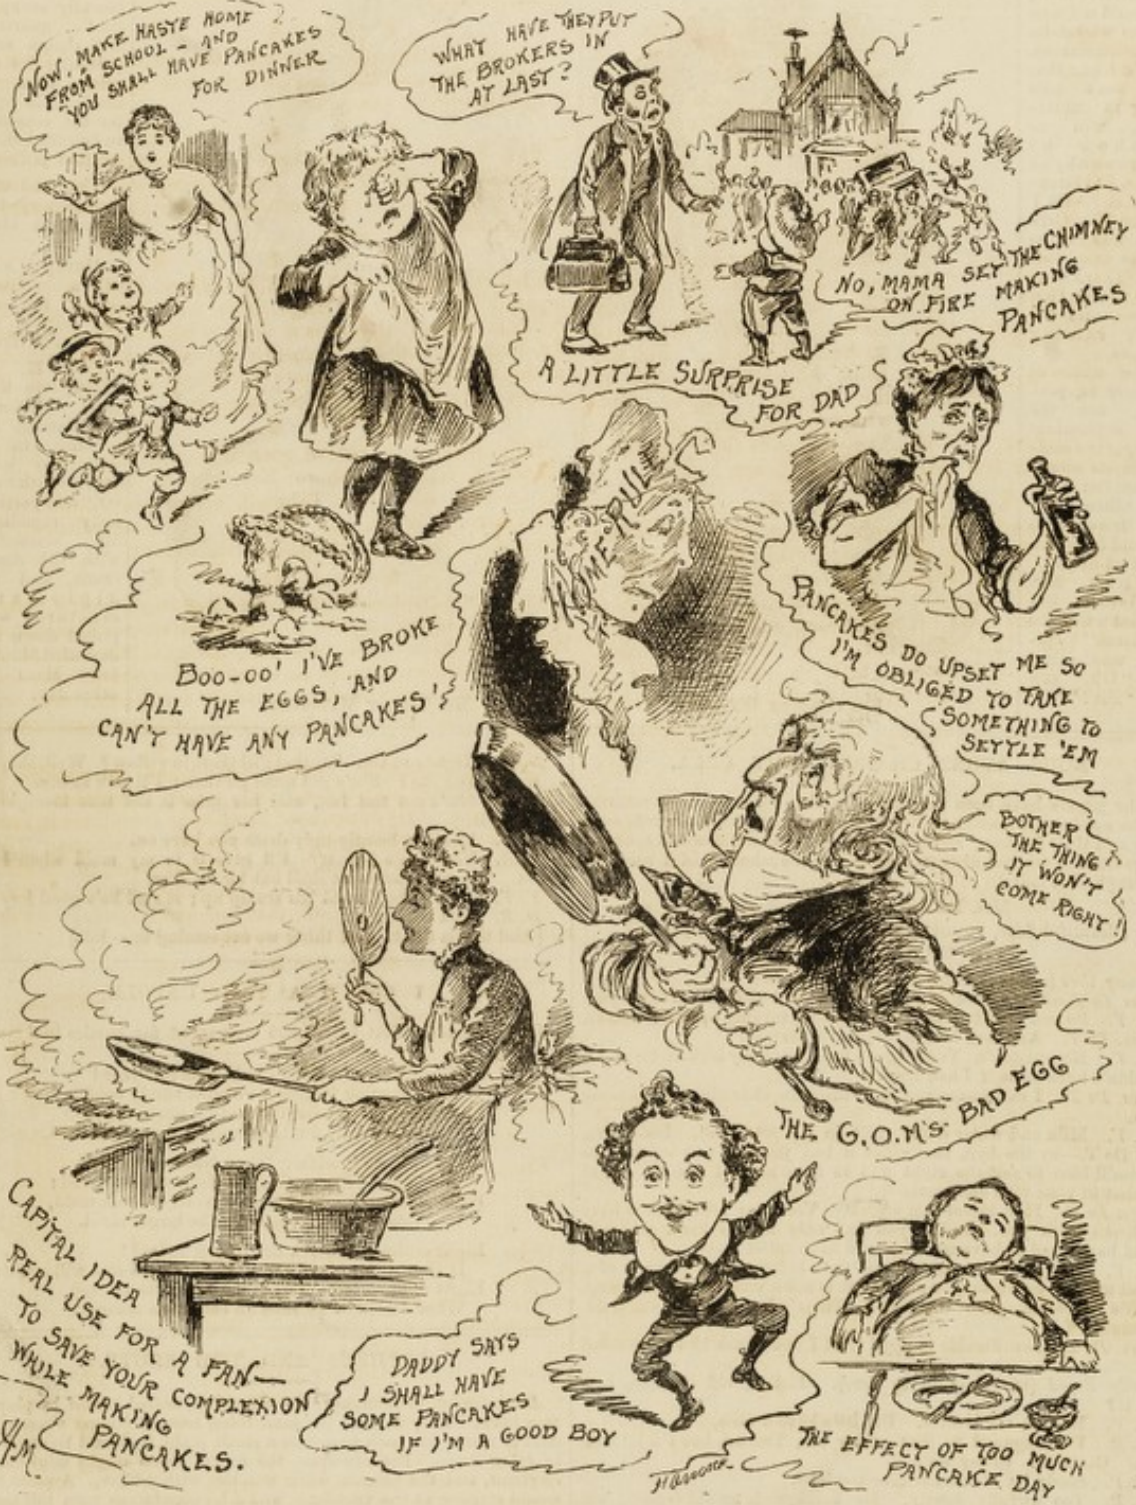 NOW, MAKE HASTE HOME
FROM SCHOOL - AND
YOU SHALL HAVE PANCAKES
FOR DINNER
WHAT HAVE THEY PUT
THE BROKERS IN
AT LAST?
NO, MAMA SET THE CHIMNEY
ON FIRE MAKING
PANCAKES
A LITTLE SURPRISE
FOR DAD
BOO-OO' I'VE BROKE
ALL THE EGGS, AND
CAN'T HAVE ANY PANCAKES'
HOME RULE
PANCAKES DO UPSET ME SO
I'M OBLIGED TO TAKE
SOMETHING TO
SETTLE 'EM
BOTHER
THE THING
IT WON'T
COME RIGHT!
THE G.O.M'S BAD EGG
CAPITAL IDEA
REAL USE FOR A FAN—
TO SAVE YOUR COMPLEXION
WHILE MAKING
PANCAKES.
DADDY SAYS
I SHALL HAVE
SOME PANCAKES
IF I'M A GOOD BOY
THE EFFECT OF TOO MUCH
PANCAKE DAY